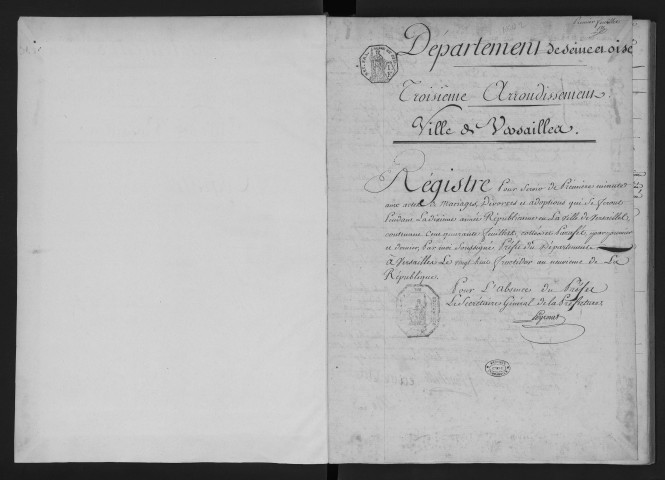 Premier feuillet
Département de Seine et oise
Troisième Arrondissement
Ville de Versailles.
Régistre pour servir de Premiere minute
aux actes de Mariages, Divorces et adoptions qui Se feront
Pendant La dixieme année Républicaine en La Ville de Versailles
contenant Cent quarante feuillets cottés et paraphés, par premier
et dernier, Par moi Soussigné Préfet du Département
à Versailles Le vingt huit fructidor an neuvieme de La
République.
Pour L'absence du Préfet
Le Secrétaire Général de la Préfecture